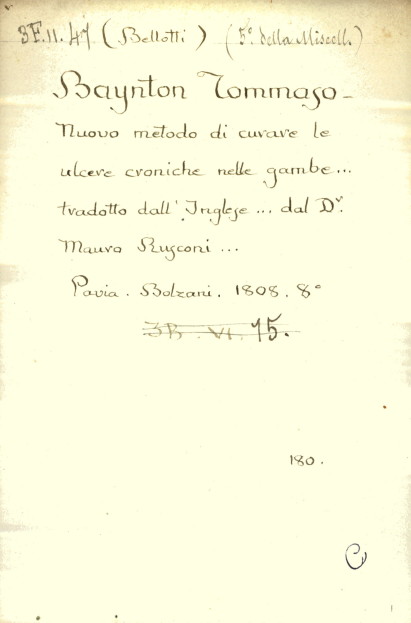 3F.11.47 (Bellotti) (5º. della Miscell.)
Baynton Tommaso -
Nuovo metodo di curare le
ulcere croniche nelle gambe ...
tradotto dall' Inglese ... dal Dr.
Mauro Rusconi ...
Pavia. Bolzani. 1808. 8º
3B. VI. 15.
180.
C